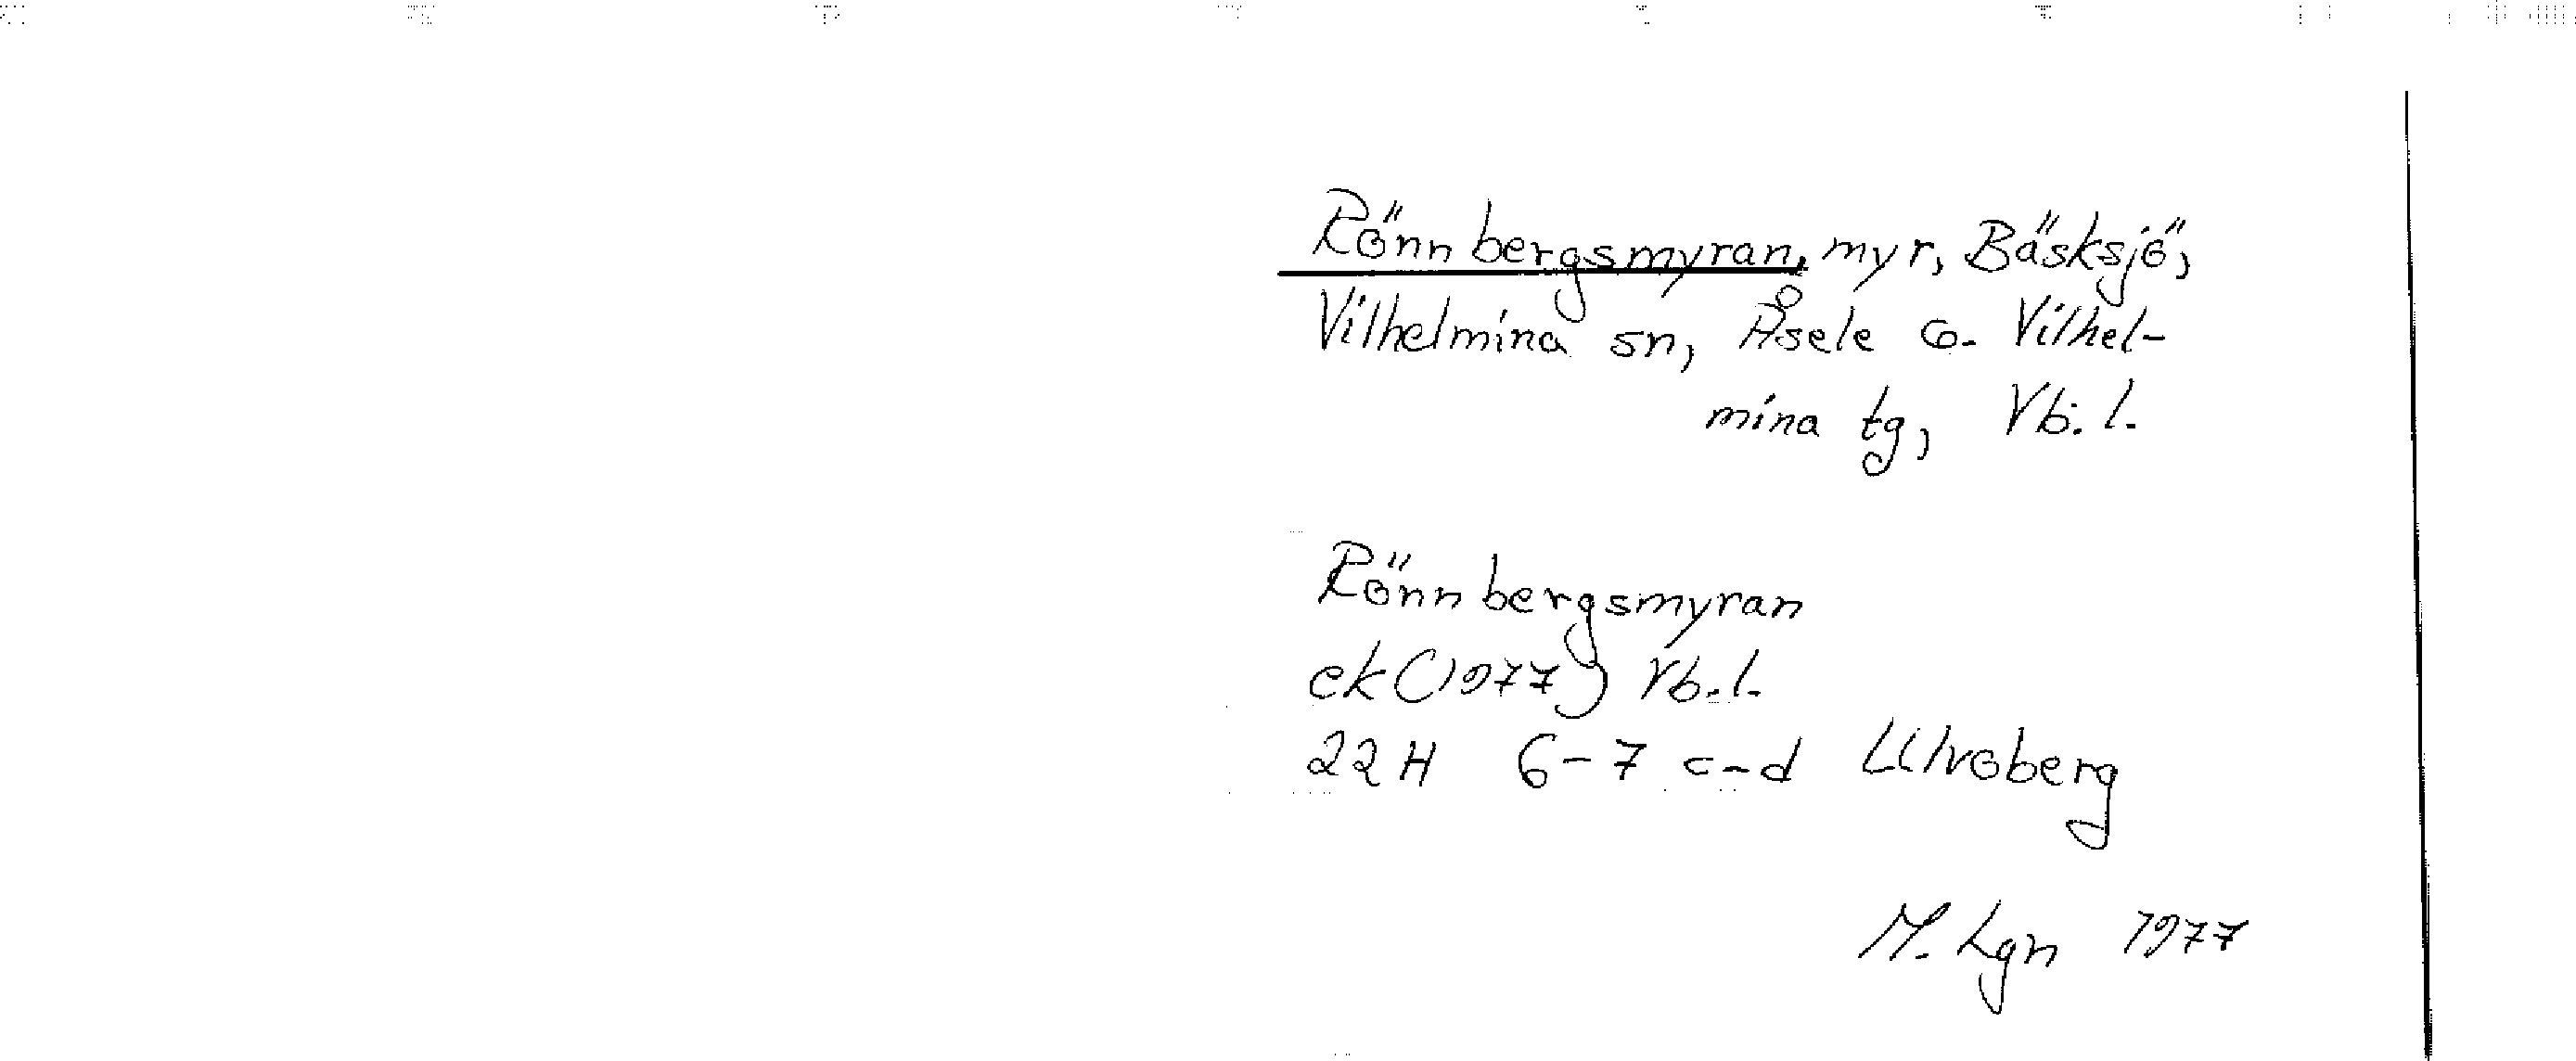 Rönnbergsmyran, myr, Bäsksjö,
Vilhelmina sn, Åsele o. Vilhel-
mina tg, Vb. l.
Rönnbergsmyran
ek (1977) Vb. l.
22 H 6-7 c-d Ulvoberg
M. Lgn 1977